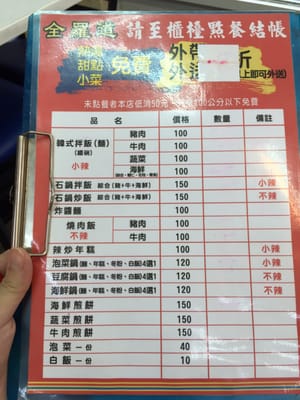 金羅道 請至櫃檯點餐結帳
甜點
小菜
免費
外帶
外送
折
上即可外送)
未點餐者本店低消50元
100公分以下免費
品 名 價格 數量 備註
韓式拌飯(麵)
小辣
豬肉 100
牛肉 100
蔬菜 100
海鮮 100
石鍋拌飯 綜合(雞+牛+海鮮) 150 小辣
石鍋炒飯 綜合(雞+牛+海鮮) 150 小辣
炸醬麵 100
燒肉飯
不辣
豬肉 100
牛肉 100
辣炒年糕 100 小辣
泡菜鍋(麵、年糕、冬粉、白飯)4選1 120 小辣
豆腐鍋(麵、年糕、冬粉、白飯)4選1 120 不辣
海鮮鍋(麵、年糕、冬粉、白飯)4選1 120 不辣
海鮮煎餅 150
蔬菜煎餅 150
牛肉煎餅 150
泡菜一份 40
白飯一份 10